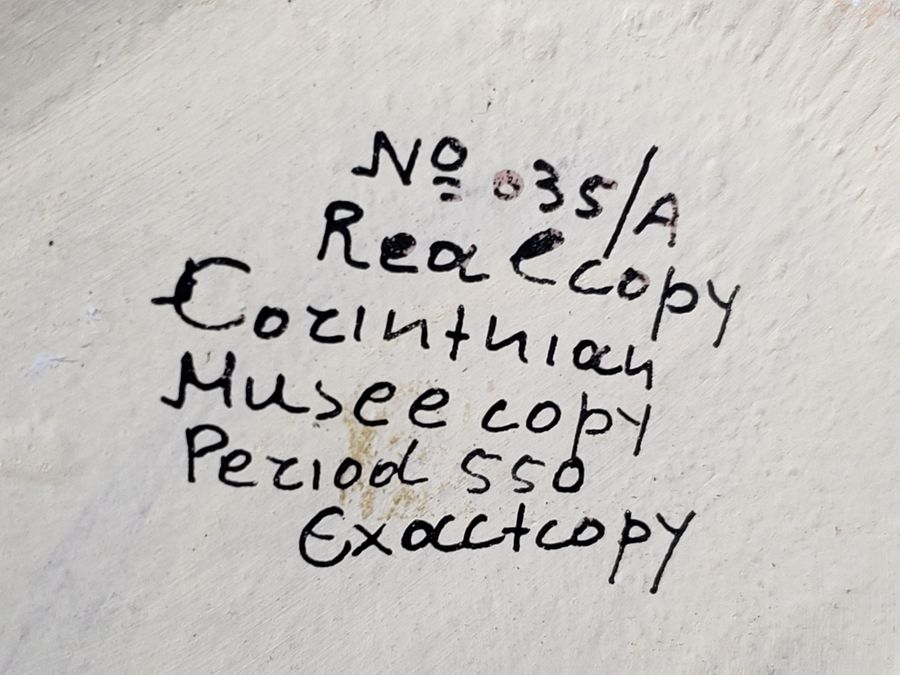 Nº 035/A
Reae copy
Corinthian
Musee copy
Period 550
Exacct copy